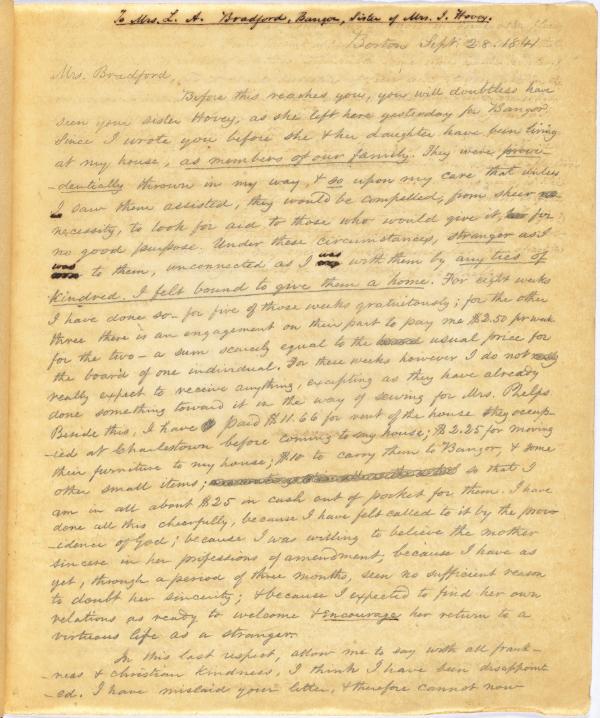 To Mrs. L. A. Bradford, Bangor, Sister of Mrs. I. Hovey.
Boston Sept. 28. 1841
Mrs. Bradford,
Before this reaches you, you will doubtless have
seen your sister Hovey, as she left here yesterday for Bangor.
Since I wrote you before she & her daughter have been living
at my house, as members of our family. They were provi-
-dentially thrown in my way, & so upon my care that unless
I saw them assisted, they would be compelled, from sheer
necessity, to look for aid to those who would give it, for
no good purpose. Under these circumstances, stranger as I
was to them, unconnected as I was with them by any ties of
kindred, I felt bound to give them a home. For eight weeks
I have done so - for five of those weeks gratuitously; for the other
three there is an engagement on their part to pay me $2.50 pr week
for the two - a sum scarcely equal to the usual price for
the board of one individual. For these weeks however I do not
really expect to receive anything, excepting as they have already
done something toward it in the way of sewing for Mrs. Phelps.
Beside this, I have paid $11.66 for rent of the house they occup-
-ied at Charlestown before coming to my house; $2.25 for moving
their furniture to my house; $10 to carry them to Bangor, & some
other small items; so that I
am in all about $25 in cash out of pocket for them. I have
done all this cheerfully, because I have felt called to it by the prov-
-idence of God; because I was willing to believe the mother
sincere in her professions of amendment, because I have as
yet, through a period of three months, seen no sufficient reason
to doubt her sincerity; & because I expected to find her own
relations as ready to welcome & encourage her return to a
virtuous life as a stranger.
In this last respect, allow me to say with all frank-
-ness & christian kindness, I think I have been disappoint-
-ed. I have mislaid your letter, & therefore cannot now